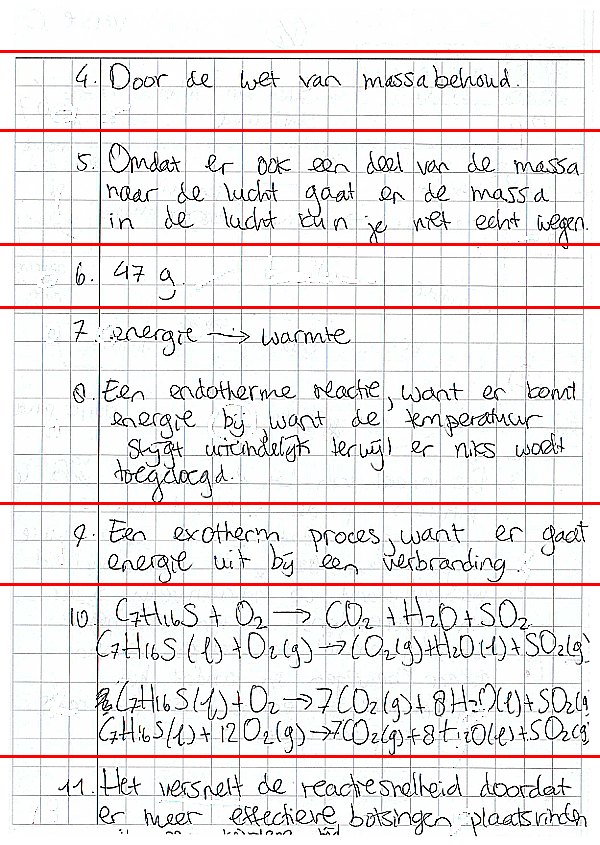 4. Door de wet van massabehoud.
5. Omdat er ook een deel van de massa
naar de lucht gaat en de massa
in de lucht kun je niet echt wegen.
6. 47 g
7. energie → warmte
8. Een endotherme reactie, want er komt
energie bij, want de temperatuur
stijgt uiteindelijk terwijl er niks wodt
toegdoegd.
9. Een exotherm proces, want er gaat
energie uit bij een verbranding.
10. C7H16S + O2 → CO2 + H2O + SO2
C7H16S (l) + O2(g) → CO2(g) + H2O(l) + SO2(g)
C7H16S(l) + O2 → 7CO2(g) + 8H2O(l) + SO2(g
C7H16S(l) + 12O2(g) → 7CO2(g) + 8H2O(l) + SO2(g)
11. Het versnelt de reactiesnelheid doordat
er meer effectieve botsingen plaatsvinden